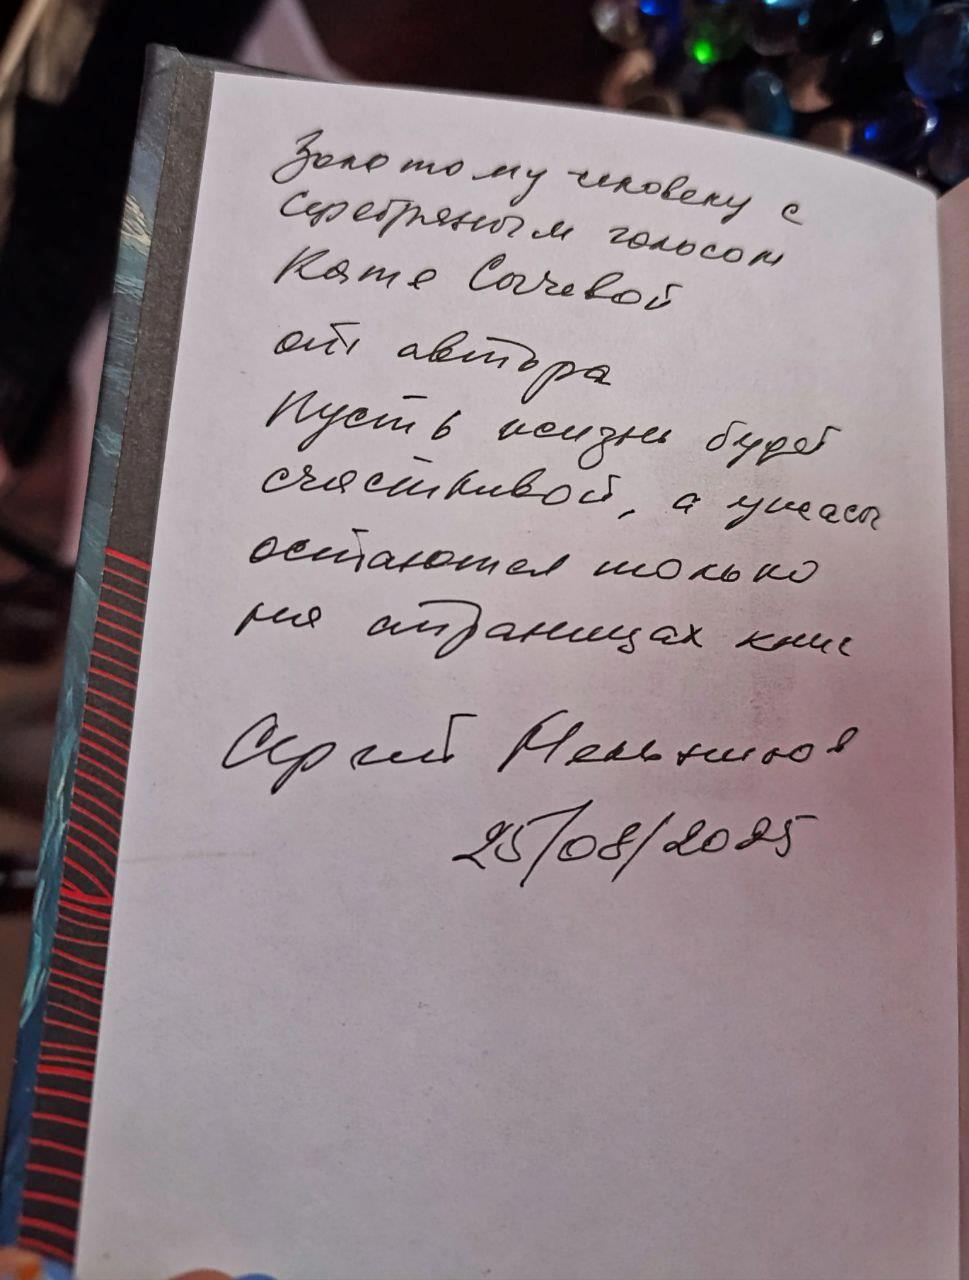 Золотому человеку с
серебряным голосом
Кате Сычевой
от автора
Пусть жизнь будет
счастливой, а ужасы
остаются только
на страницах книг
Сергей Мельников
25/08/2025